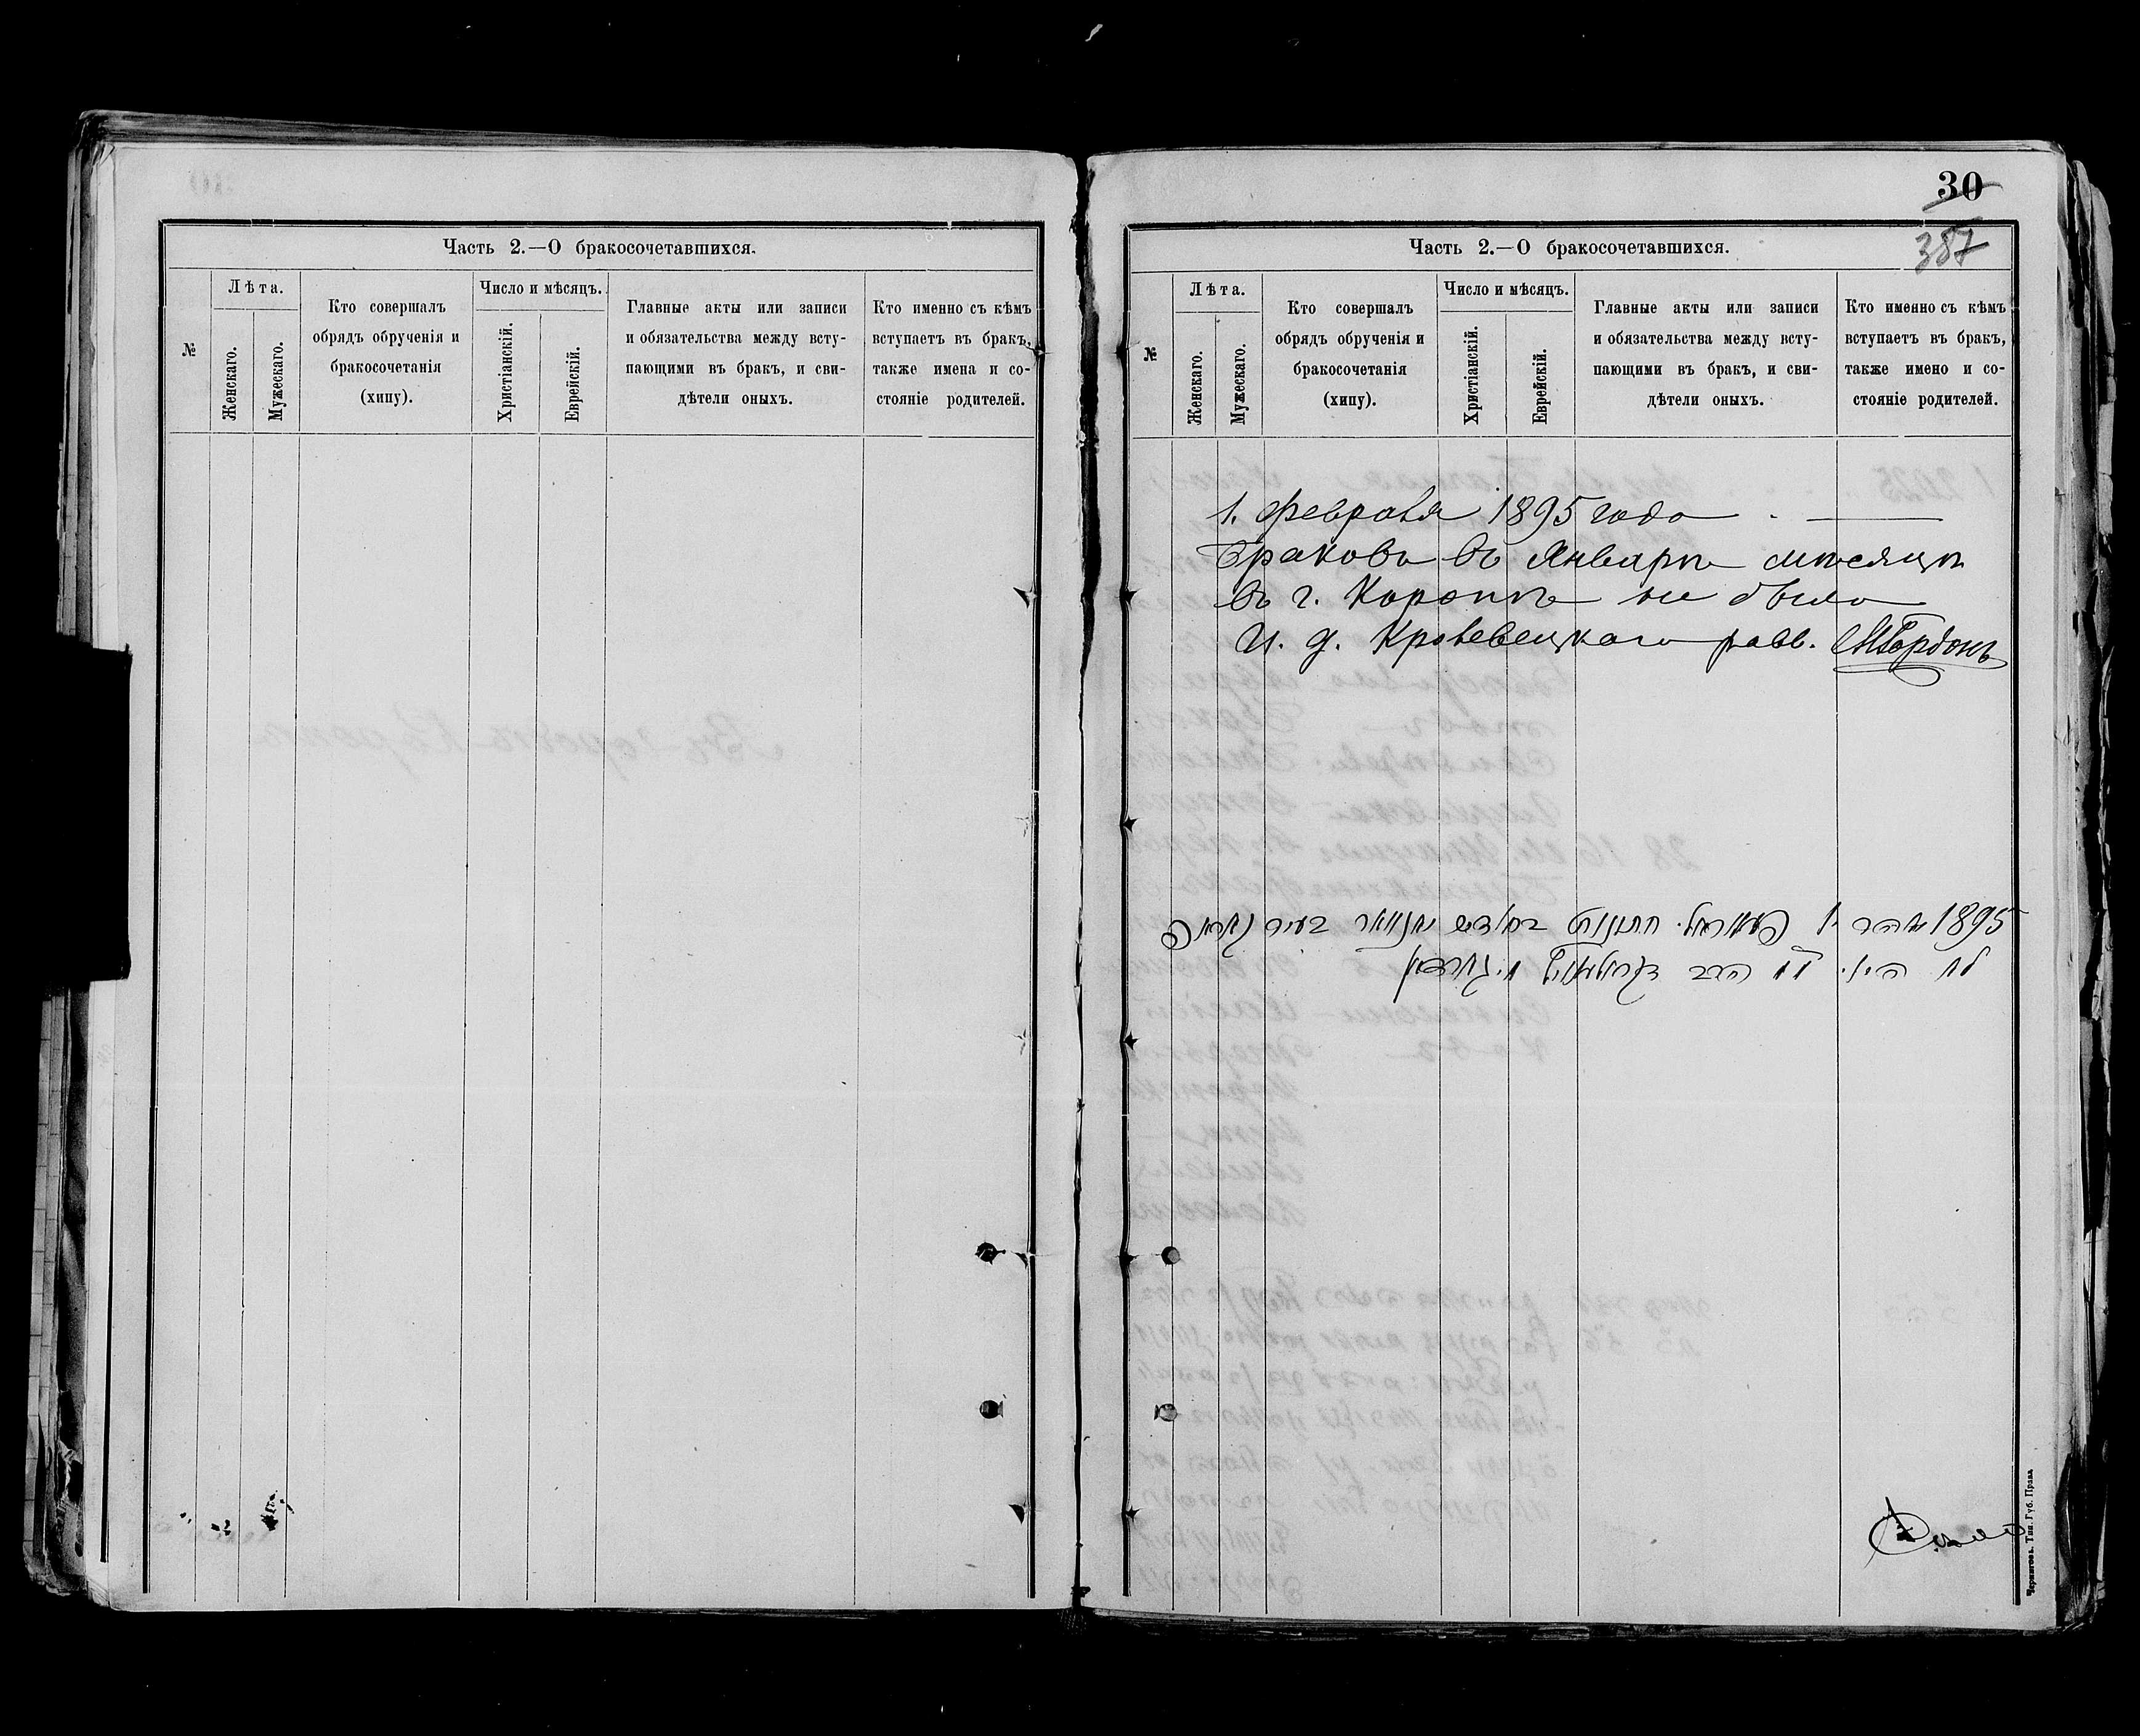 Часть 2.—О бракосочетавшихся.
№
Лѣта.
Женскаго.
Мужескаго.
Кто совершалъ
обрядъ обрученія и
бракосочетанія
(хипу).
Число и мѣсяцъ.
Христіанскій.
Еврейскій.
Главные акты или записи
и обязательства между всту-
пающими въ бракъ, и сви-
дѣтели оныхъ.
Кто именно съ кѣмъ
вступаетъ въ бракъ,
также имена и со-
стояніе родителей.
30
387
Часть 2.—О бракосочетавшихся.
№
Лѣта.
Женскаго.
Мужескаго.
Кто совершалъ
обрядъ обрученія и
бракосочетанія
(хипу).
Число и мѣсяцъ.
Христіанскій.
Еврейскій.
Главные акты или записи
и обязательства между всту-
пающими въ бракъ, и сви-
дѣтели оныхъ.
Кто именно съ кѣмъ
вступаетъ въ бракъ,
также имено и со-
стояніе родителей.
1. Февраля 1895 года
Браковъ въ Январѣ мѣсяцѣ
въ г. Коропѣ не было
И. д. Кролевецкаго равв. Гордонъ
1895 1 חתונות בחודש יאנוואר בעיר קאראפ
לא היו הרב גארדאן
Черниговъ. Тип. Губ. Правл